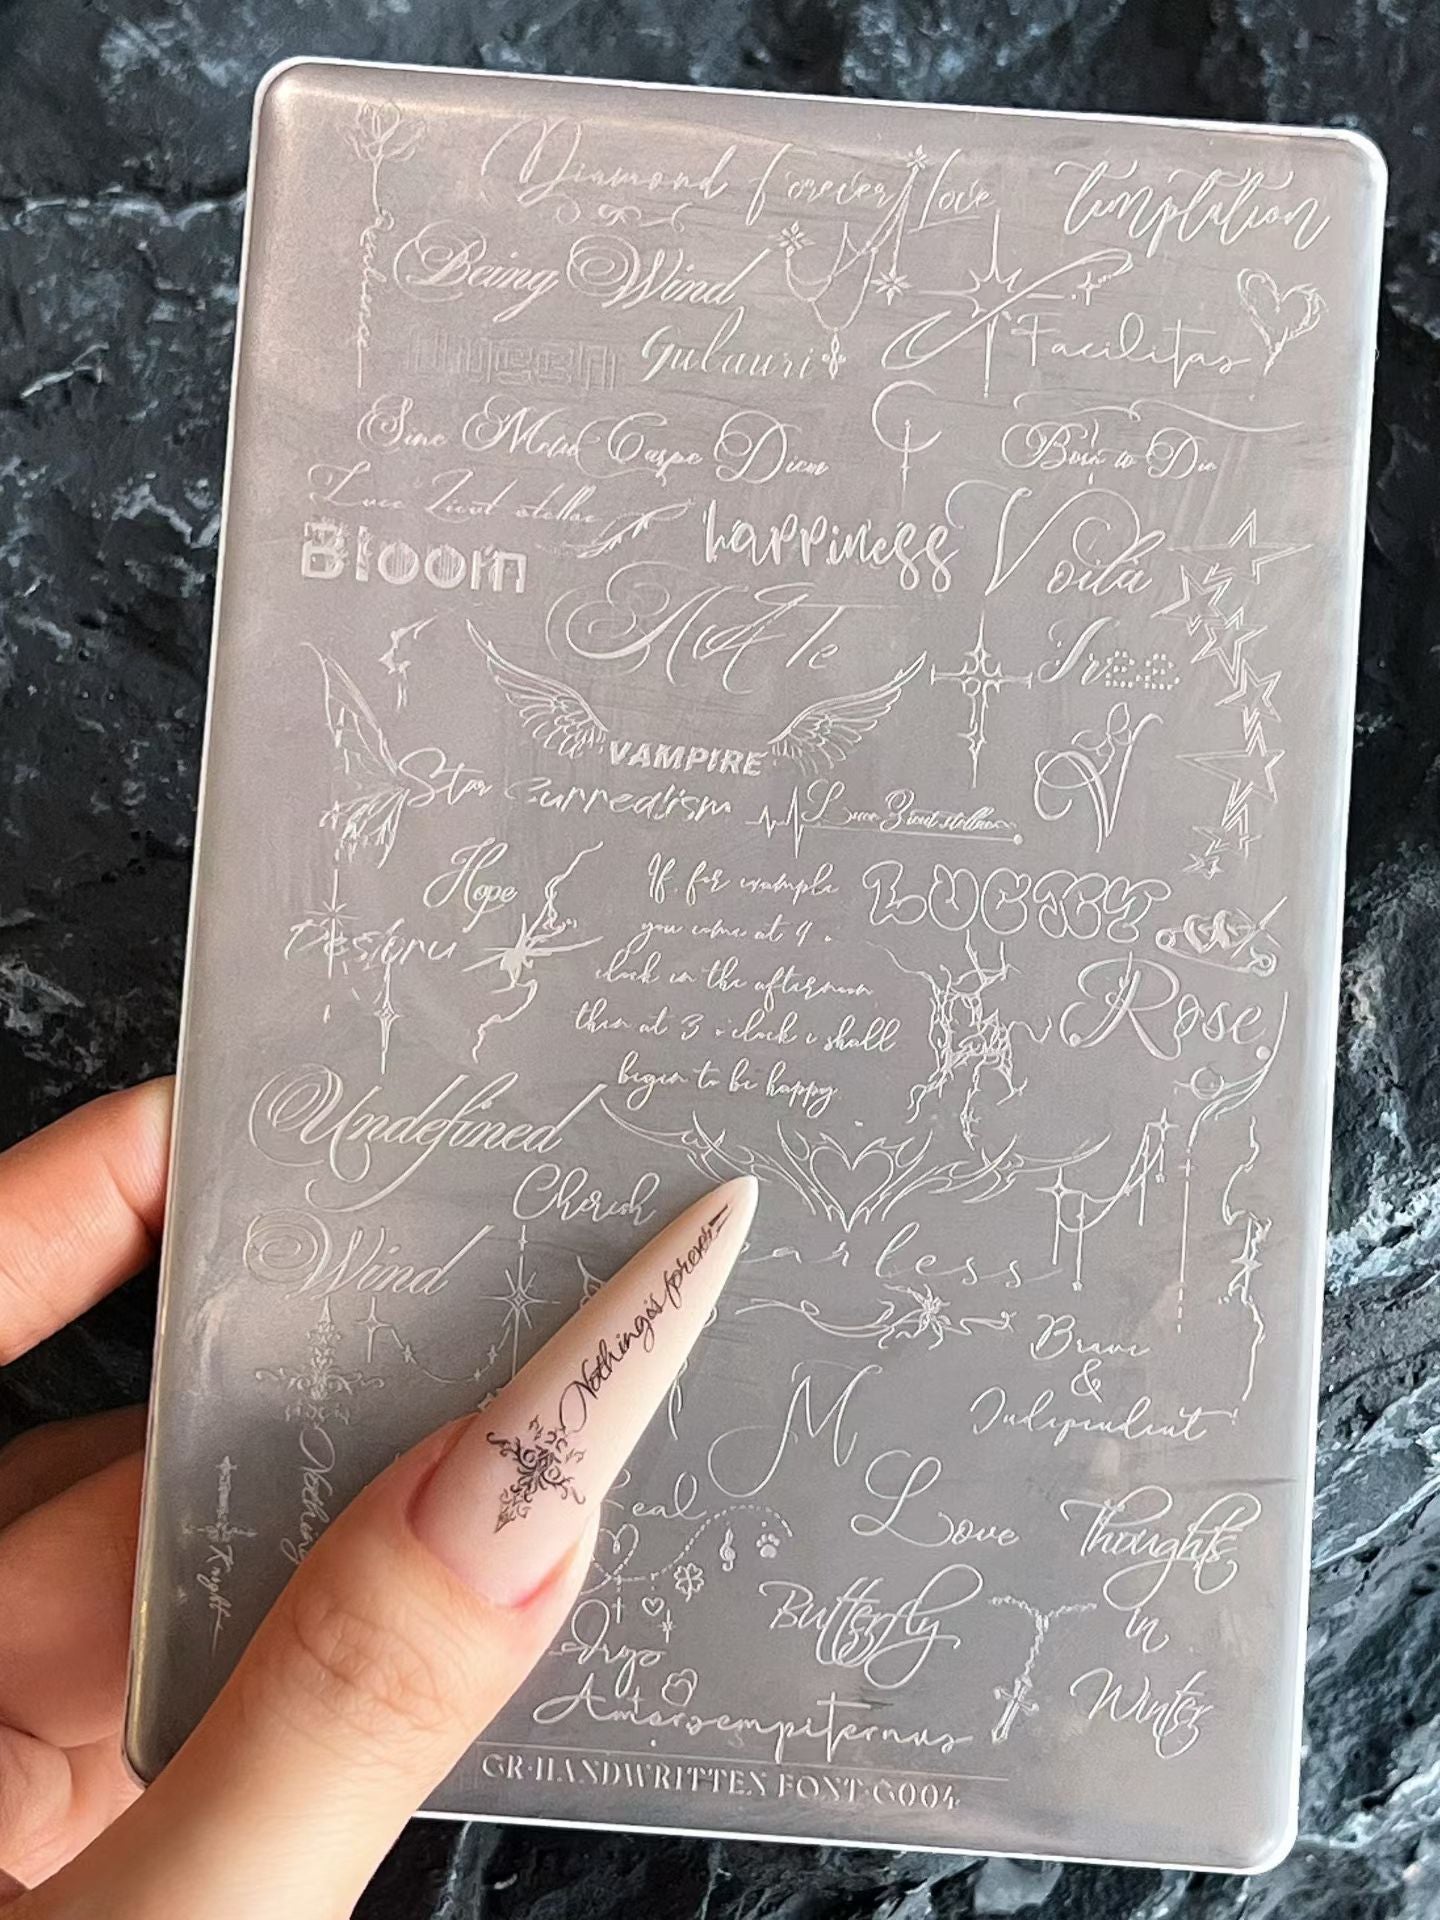 Diamond Forever Love
Temptation
Being Wind
Queen
Gulauri
Facilitas
Sine Metu Carpe Diem
Born to Die
Luce Licut stellae
Bloom
happiness
Voilà
Free
VAMPIRE
V
Star Surrealism
Hope
If, for example
you come at 4 o
clock in the afternoon
then at 3 o'clock i shall
begin to be happy.
Rose
Undefined
Cherish
Wind
earless
Nothing is forever
Brave
&
Independent
M
Nothing
Knight
eal
Love
Thoughts
in
Winter
Butterfly
Amorsempiternus
GR·HANDWRITTEN FONT·G004